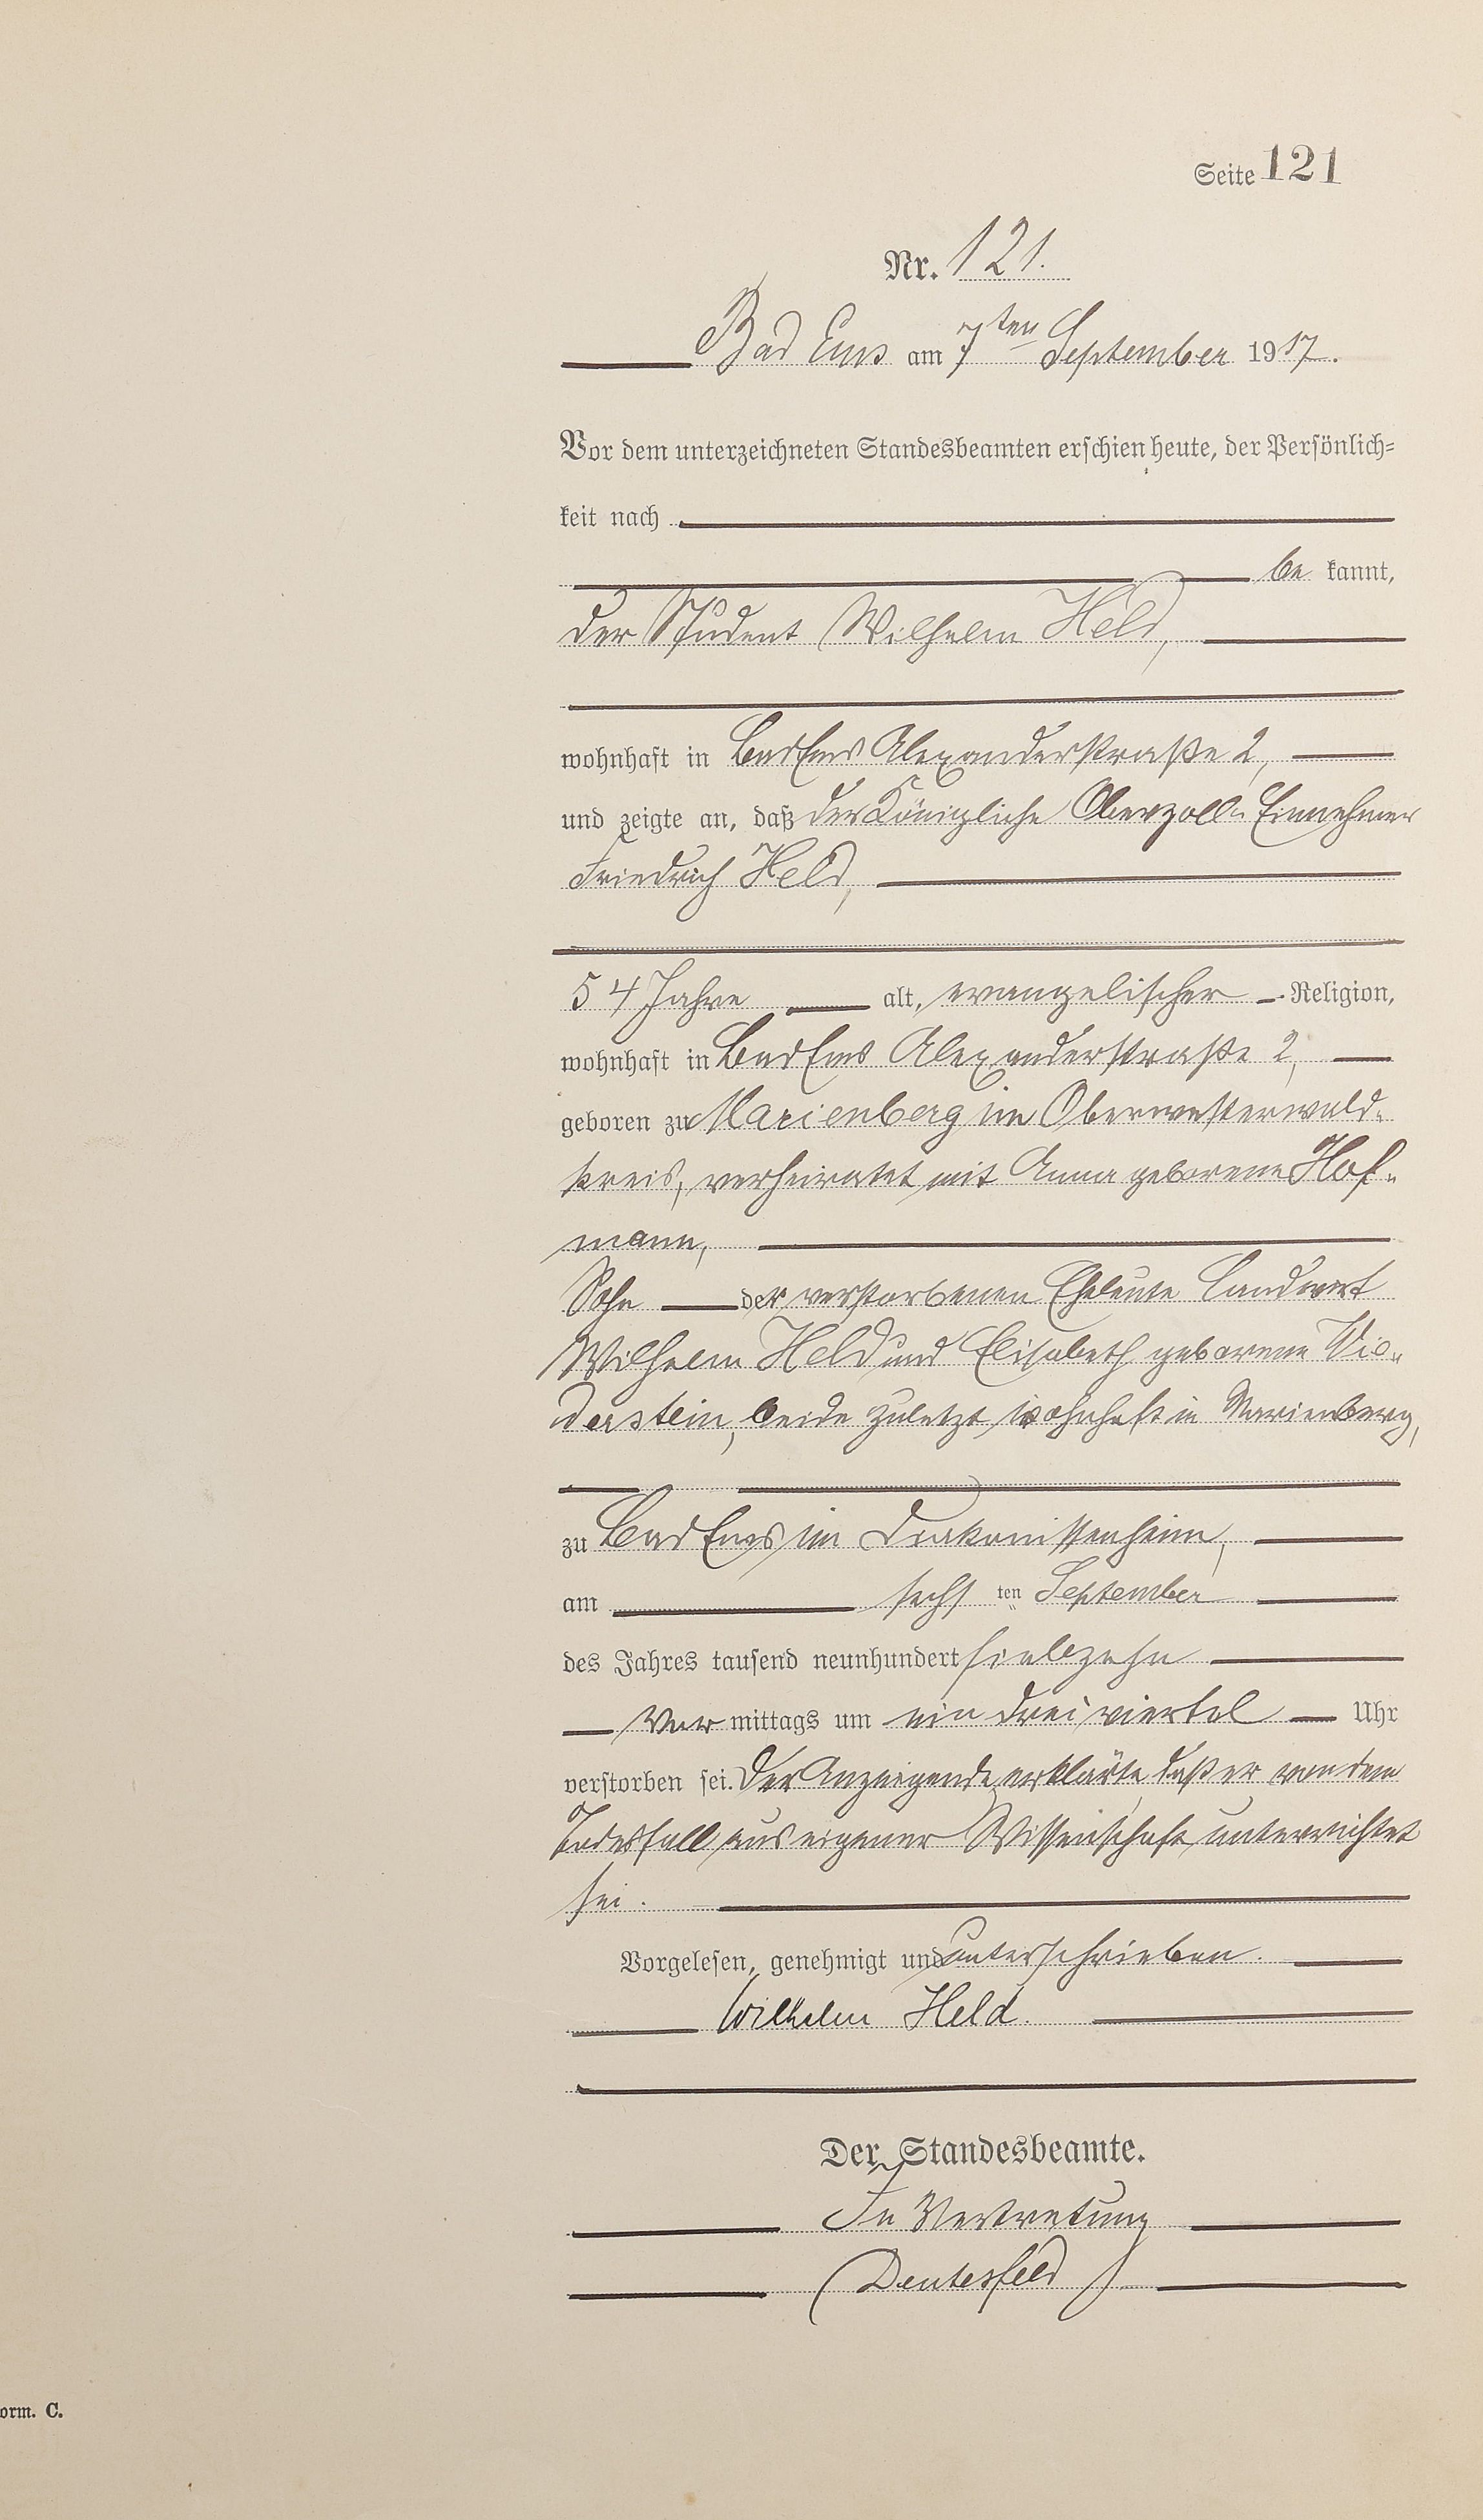 Seite 121
Nr. 121.
Bad Ems am 7ten September 1917.
Vor dem unterzeichneten Standesbeamten erschien heute, der Persönlich-
keit nach
be kannt,
der Student Wilhelm Held,
wohnhaft in Bad Ems Alexanderstraße 2,
und zeigte an, daß der Königliche Oberzoll-Einnehmer
Friedrich Held,
54 Jahre alt, evangelischer Religion,
wohnhaft in Bad Ems Alexanderstraße 2,
geboren zu Marienberg im Oberwesterwald-
kreis, verheiratet mit Anna geborene Hof-
mann,
Sohn der verstorbenen Eheleute Landwirt
Wilhelm Held und Elisabeth geborene
beide zuletzt wohnhaft in Marienberg,
zu Bad Ems im Diakonissenheim,
am sechs ten September
des Jahres tausend neunhundert siebzehn
Vor mittags um ein dreiviertel Uhr
verstorben sei. Der Anzeigende erklärte, daß er von dem
Todesfall aus eigener Wissenschaft unterrichtet
sei.
Vorgelesen, genehmigt und unterschrieben.
Wilhelm Held.
Der Standesbeamte.
In Vertretung
orm. C.